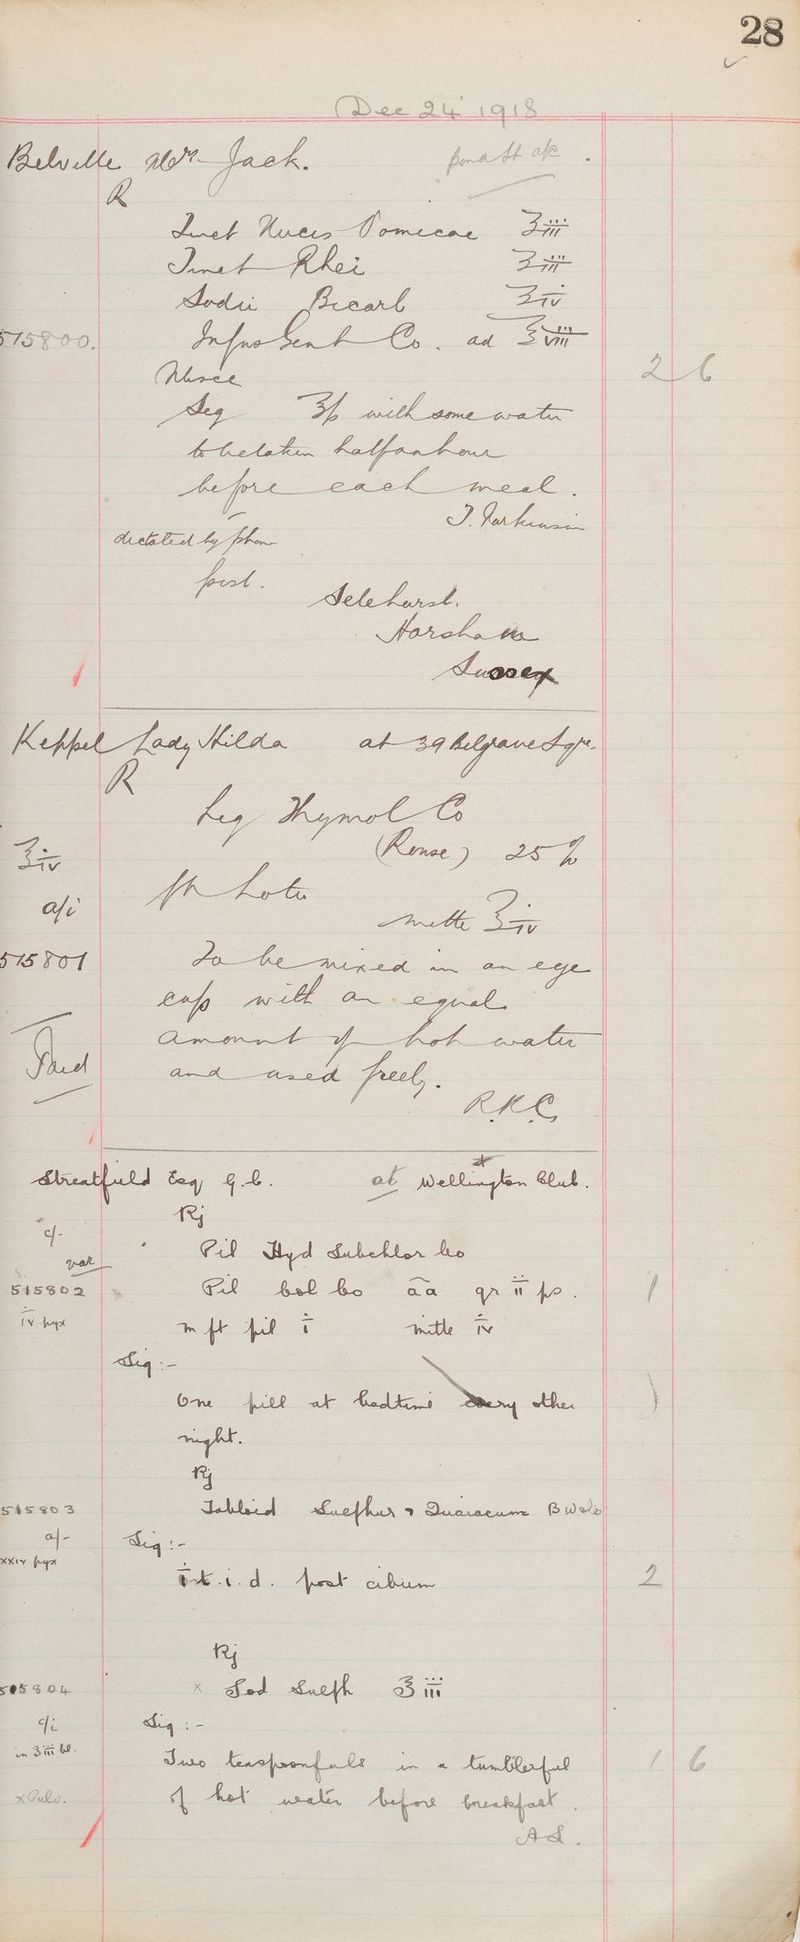 28
Dec 24 1918
Belville Mrs Jack. Bond St a/c
R
Tinct Nucis Vomicae ʒiii
Tinct Rhei ʒiii
Sodii Bicarb ʒiv
515800. Infus Gent Co. ad ℥viii
Misce 2 6
Sig ℥ß with some water
to be taken half an hour
before each meal.
T. Parkinson
dictated by phone
post.
Selehurst.
Horsham
Sussex
Keppel Lady Hilda at 39 Belgrave Sqre.
R
Liq Thymol Co
(Rouse) 25%
℥iv
ft Lotio
a/i
mitte ℥iv
515801 To be mixed in an eye
cup with an equal
amount of hot water
Paid and used freely.
R.R.C.
Streatfield Esq G.C. at Wellington Club.
Rj
c/-
Pil Hyd Subchlor Co
var
515802 Pil Col Co āā gr ii ss. 1
iv pyx m ft pil i mitte iv
Sig:-
One pill at bedtime every other
night.
Rj
515803 Tabloid Sulphur & Guaiacum B W & Co
a/- Sig:-
xxiv pyx
i t.i.d. post cibum 2
Rj
515804 x Sod Sulph ℥iii
c/i Sig:-
in ℥iii bl.
Two teaspoonfuls in a tumblerful 1 6
x Pulv. of hot water before breakfast.
A S.